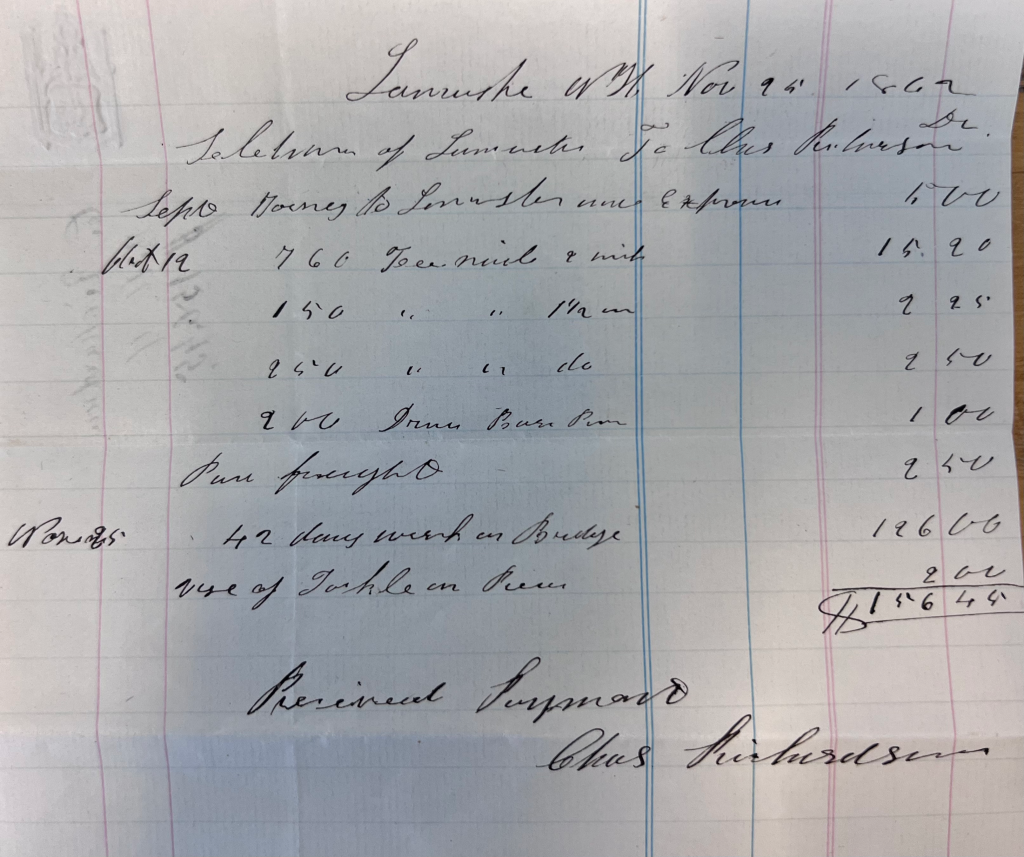 Lancaster NH Nov 25. 1862
Selectmen of Lancaster To Chas Richardson Dr.
Sept Going to Lancaster and Expenses 5 00
Oct 12 760 Tree nails 2 inch 15. 20
150 " " 1 1/2 in 2 25
250 " " do 2 50
200 1 00
Paid freight 2 50
Nov 25 42 days work on Bridge 126 00
use of Tackle on Piers 2 00
$156 45
Received Payment
Chas Richardson